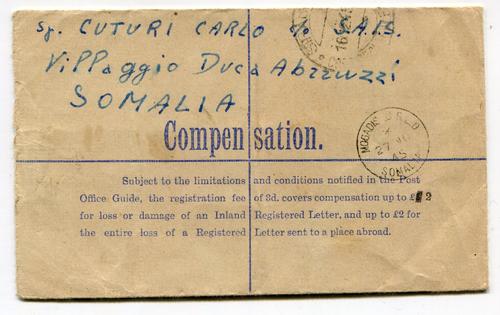 Sg. CUTURI CARLO c/o S.A.I.S.
Villaggio Duca Abruzzi
SOMALIA
Compensation.
MOGADISHU R.L.O
27
45
SOMALIA
Subject to the limitations and conditions notified in the Post
Office Guide, the registration fee of 3d. covers compensation up to £ 2
for loss or damage of an Inland Registered Letter, and up to £2 for
the entire loss of a Registered Letter sent to a place abroad.